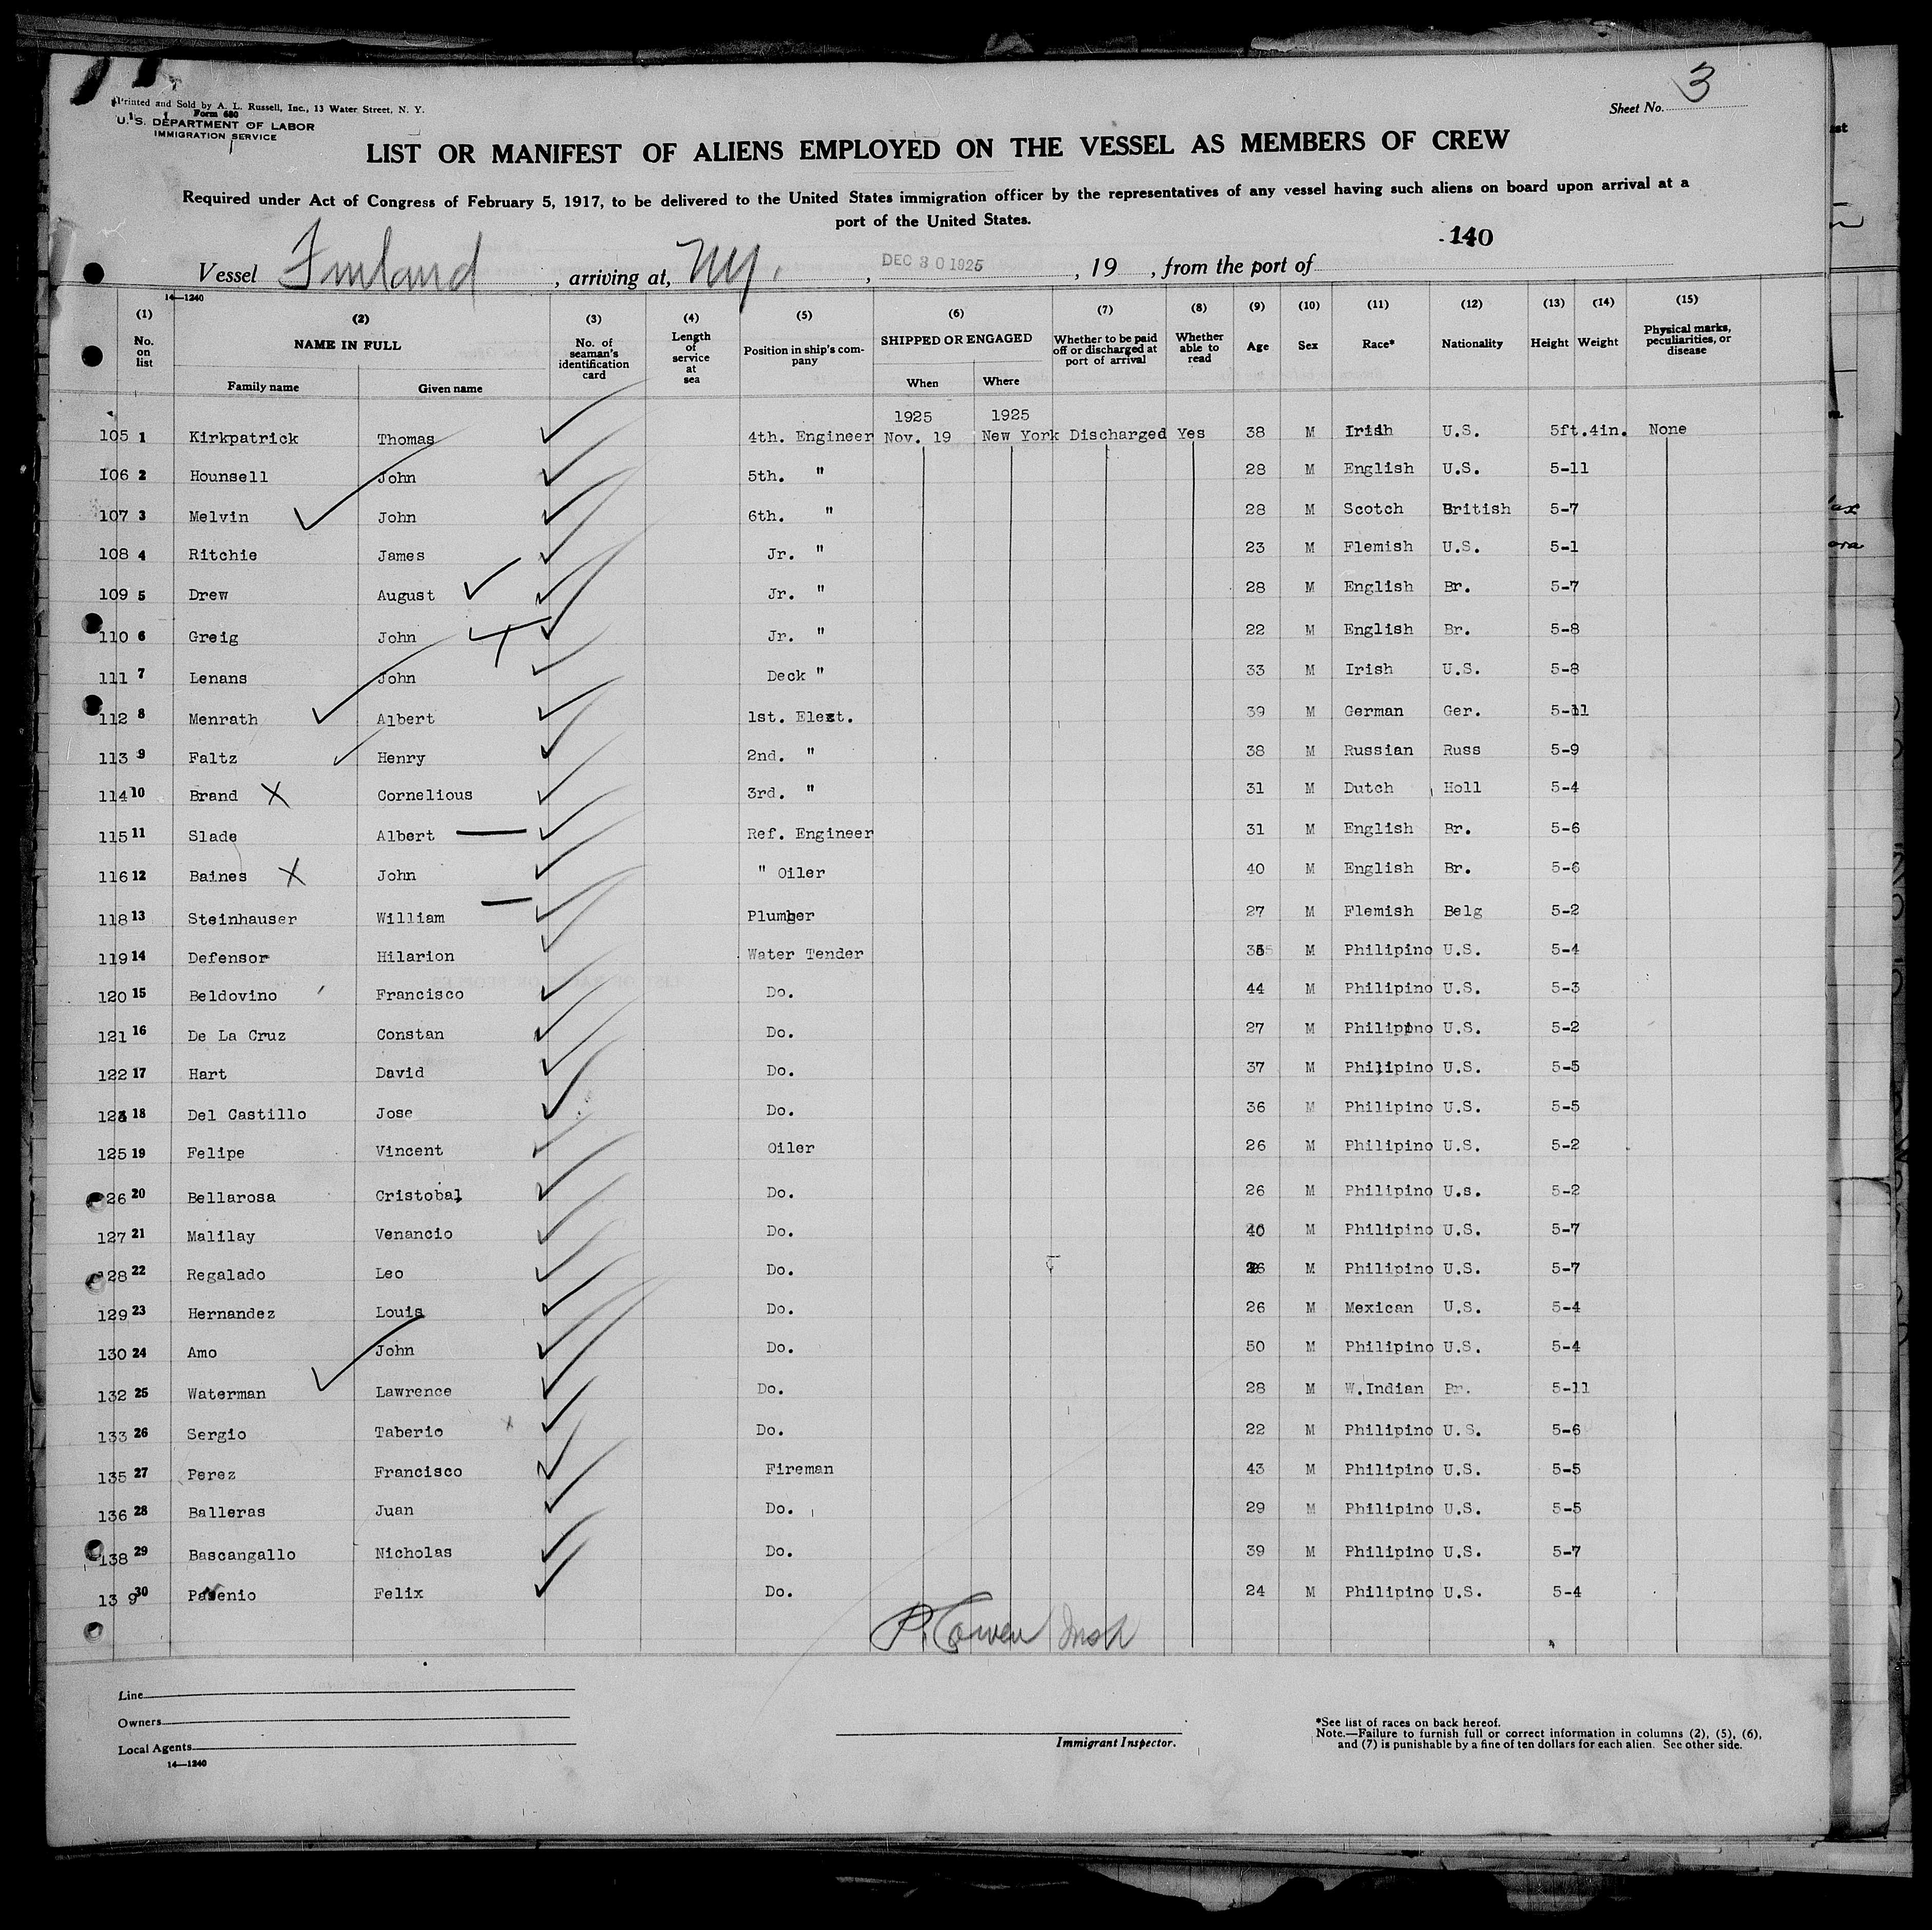 Printed and Sold by A. L. Russell, Inc., 13 Water Street, N. Y.
Form 680
U. S. DEPARTMENT OF LABOR
IMMIGRATION SERVICE
Sheet No. 3
LIST OR MANIFEST OF ALIENS EMPLOYED ON THE VESSEL AS MEMBERS OF CREW
Required under Act of Congress of February 5, 1917, to be delivered to the United States immigration officer by the representatives of any vessel having such aliens on board upon arrival at a
port of the United States.
140
Vessel Finland, arriving at, NY., DEC 30 1925, 19 , from the port of
14—1240
(1) No. on list (2) NAME IN FULL Family name Given name (3) No. of seaman's identification card (4) Length of service at sea (5) Position in ship's company (6) SHIPPED OR ENGAGED When Where (7) Whether to be paid off or discharged at port of arrival (8) Whether able to read (9) Age (10) Sex (11) Race* (12) Nationality (13) Height (14) Weight (15) Physical marks, peculiarities, or disease
1925 1925
105 1 Kirkpatrick Thomas 4th. Engineer Nov. 19 New York Discharged Yes 38 M Irish U.S. 5ft.4in. None
106 2 Hounsell John 5th. " 28 M English U.S. 5-11
107 3 Melvin John 6th. " 28 M Scotch British 5-7
108 4 Ritchie James Jr. " 23 M Flemish U.S. 5-1
109 5 Drew August Jr. " 28 M English Br. 5-7
110 6 Greig John Jr. " 22 M English Br. 5-8
111 7 Lenans John Deck " 33 M Irish U.S. 5-8
112 8 Menrath Albert 1st. Elect. 39 M German Ger. 5-11
113 9 Faltz Henry 2nd. " 38 M Russian Russ 5-9
114 10 Brand X Cornelious 3rd. " 31 M Dutch Holl 5-4
115 11 Slade Albert Ref. Engineer 31 M English Br. 5-6
116 12 Baines X John " Oiler 40 M English Br. 5-6
118 13 Steinhauser William Plumber 27 M Flemish Belg 5-2
119 14 Defensor Hilarion Water Tender M Philipino U.S. 5-4
120 15 Beldovino Francisco Do. 44 M Philipino U.S. 5-3
121 16 De La Cruz Constan Do. 27 M Philipino U.S. 5-2
122 17 Hart David Do. 37 M Philipino U.S. 5-5
123 18 Del Castillo Jose Do. 36 M Philipino U.S. 5-5
125 19 Felipe Vincent Oiler 26 M Philipino U.S. 5-2
26 20 Bellarosa Cristobal Do. 26 M Philipino U.s. 5-2
127 21 Malilay Venancio Do. 40 M Philipino U.S. 5-7
28 22 Regalado Leo Do. M Philipino U.S. 5-7
129 23 Hernandez Louis Do. 26 M Mexican U.S. 5-4
130 24 Amo John Do. 50 M Philipino U.S. 5-4
132 25 Waterman Lawrence Do. 28 M W.Indian Br. 5-11
133 26 Sergio Taberio x Do. 22 M Philipino U.S. 5-6
135 27 Perez Francisco Fireman 43 M Philipino U.S. 5-5
136 28 Balleras Juan Do. 29 M Philipino U.S. 5-5
138 29 Bascangallo Nicholas Do. 39 M Philipino U.S. 5-7
13 9 30 Felix Do. 24 M Philipino U.S. 5-4
Line
Owners
Local Agents
14—1240
Immigrant Inspector.
*See list of races on back hereof.
Note.—Failure to furnish full or correct information in columns (2), (5), (6),
and (7) is punishable by a fine of ten dollars for each alien. See other side.